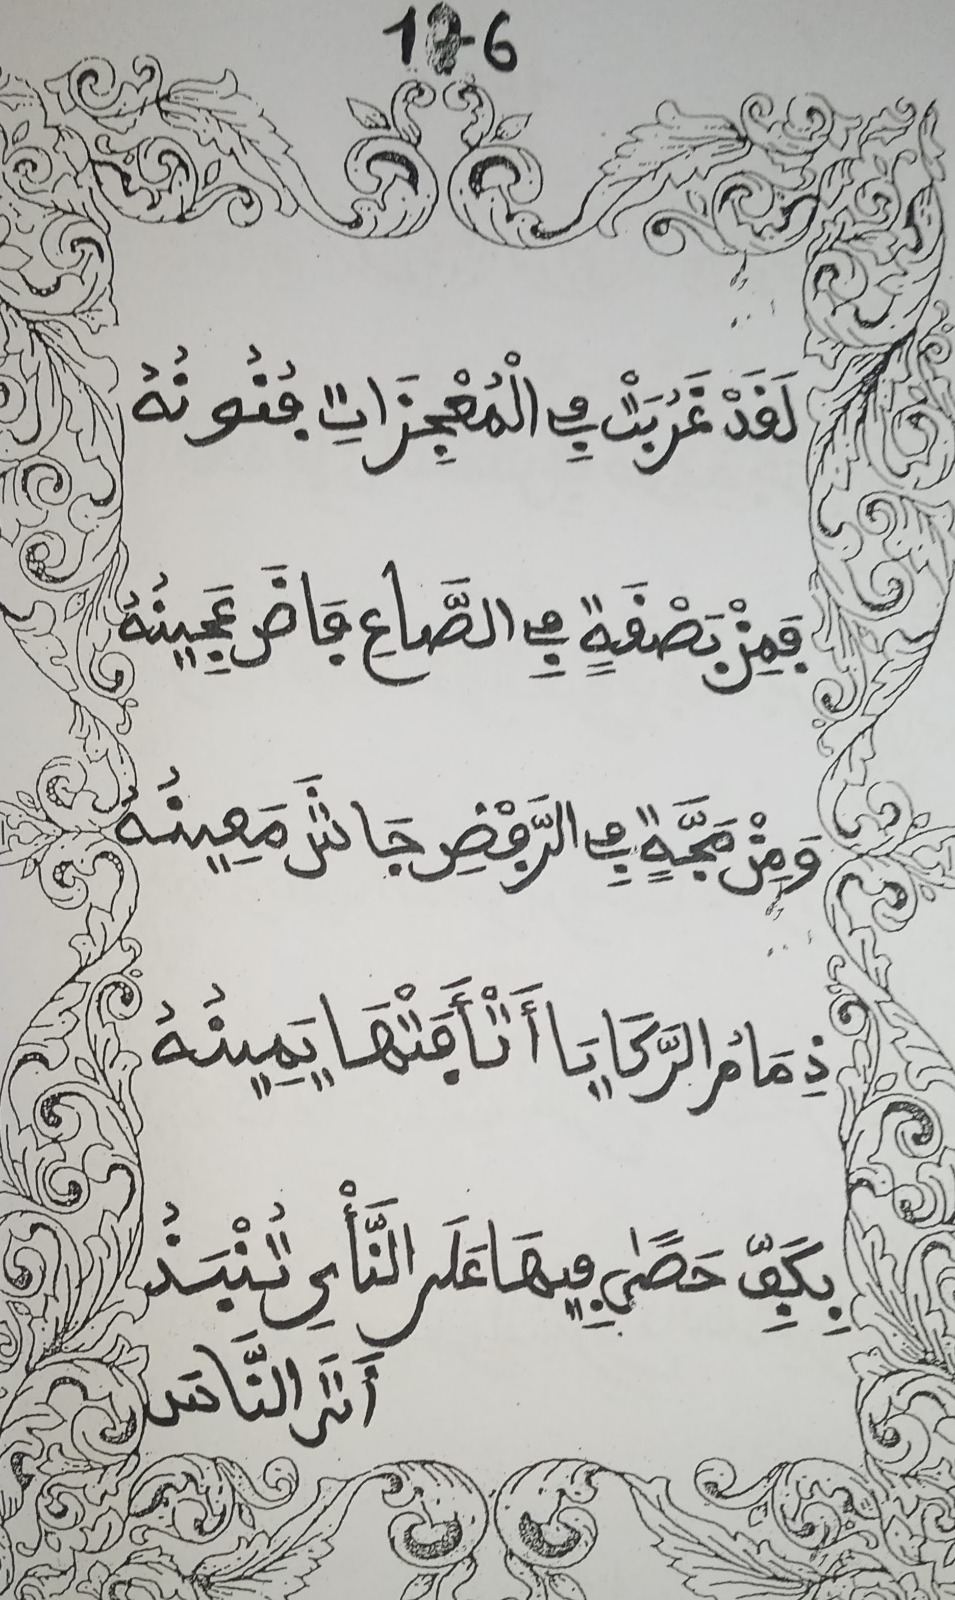 لَقَدْ غَرُبَتْ فِي الْمُعْجِزَاتِ فُنُونُهُ
فَمِنْ بَصْقَةٍ فِي الصَّاعِ فَاضَ عَجِينُهُ
وَمِنْ مَجَّةٍ فِي الرَّفْضِ جَاشَ مَعِينُهُ
ذِمَامُ الرَّكَايَا أَتْأَقَتْهَا يَمِينُهُ
بِكَفِّ حَصًى فِيهَا عَلَى النَّأْيِ تُنْبَذُ
أَتَى النَّاسَ